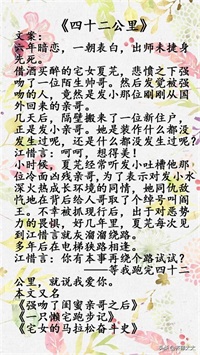 《四十二公里》
文案：
六年暗恋，一朝表白，出师未捷身
先死。
借酒买醉的宅女夏芫，悲愤之下强
吻了一位陌生帅哥。然后发觉被强
吻的人，竟然是发小那位刚刚从国
外回来的亲哥。
几天后，隔壁搬来了一位新住户，
正是发小亲哥。她是装作什么都没
发生过呢，还是什么都没发生过呢。
江惜言：呵呵，想得美！
小时候，夏芫经常听发小吐槽他那
位冷面凶残亲哥，为了表示对发小水
深火热成长环境的同情，她同仇敌
忾地在背后给人哥取了个绰号叫阎
王。不幸被抓现行后，出于对恶势
力的畏惧，好几年里，夏芫每次见
到江惜言就灰溜溜绕路。
多年后在电梯狭路相逢。
江惜言：你有本事再绕个路试试？
——等我跑完四十二
公里，就说我爱你。
本文又名
《强吻了闺蜜亲哥之后》
《一只懒宅跑步记》
《宅女的马拉松奋斗史》